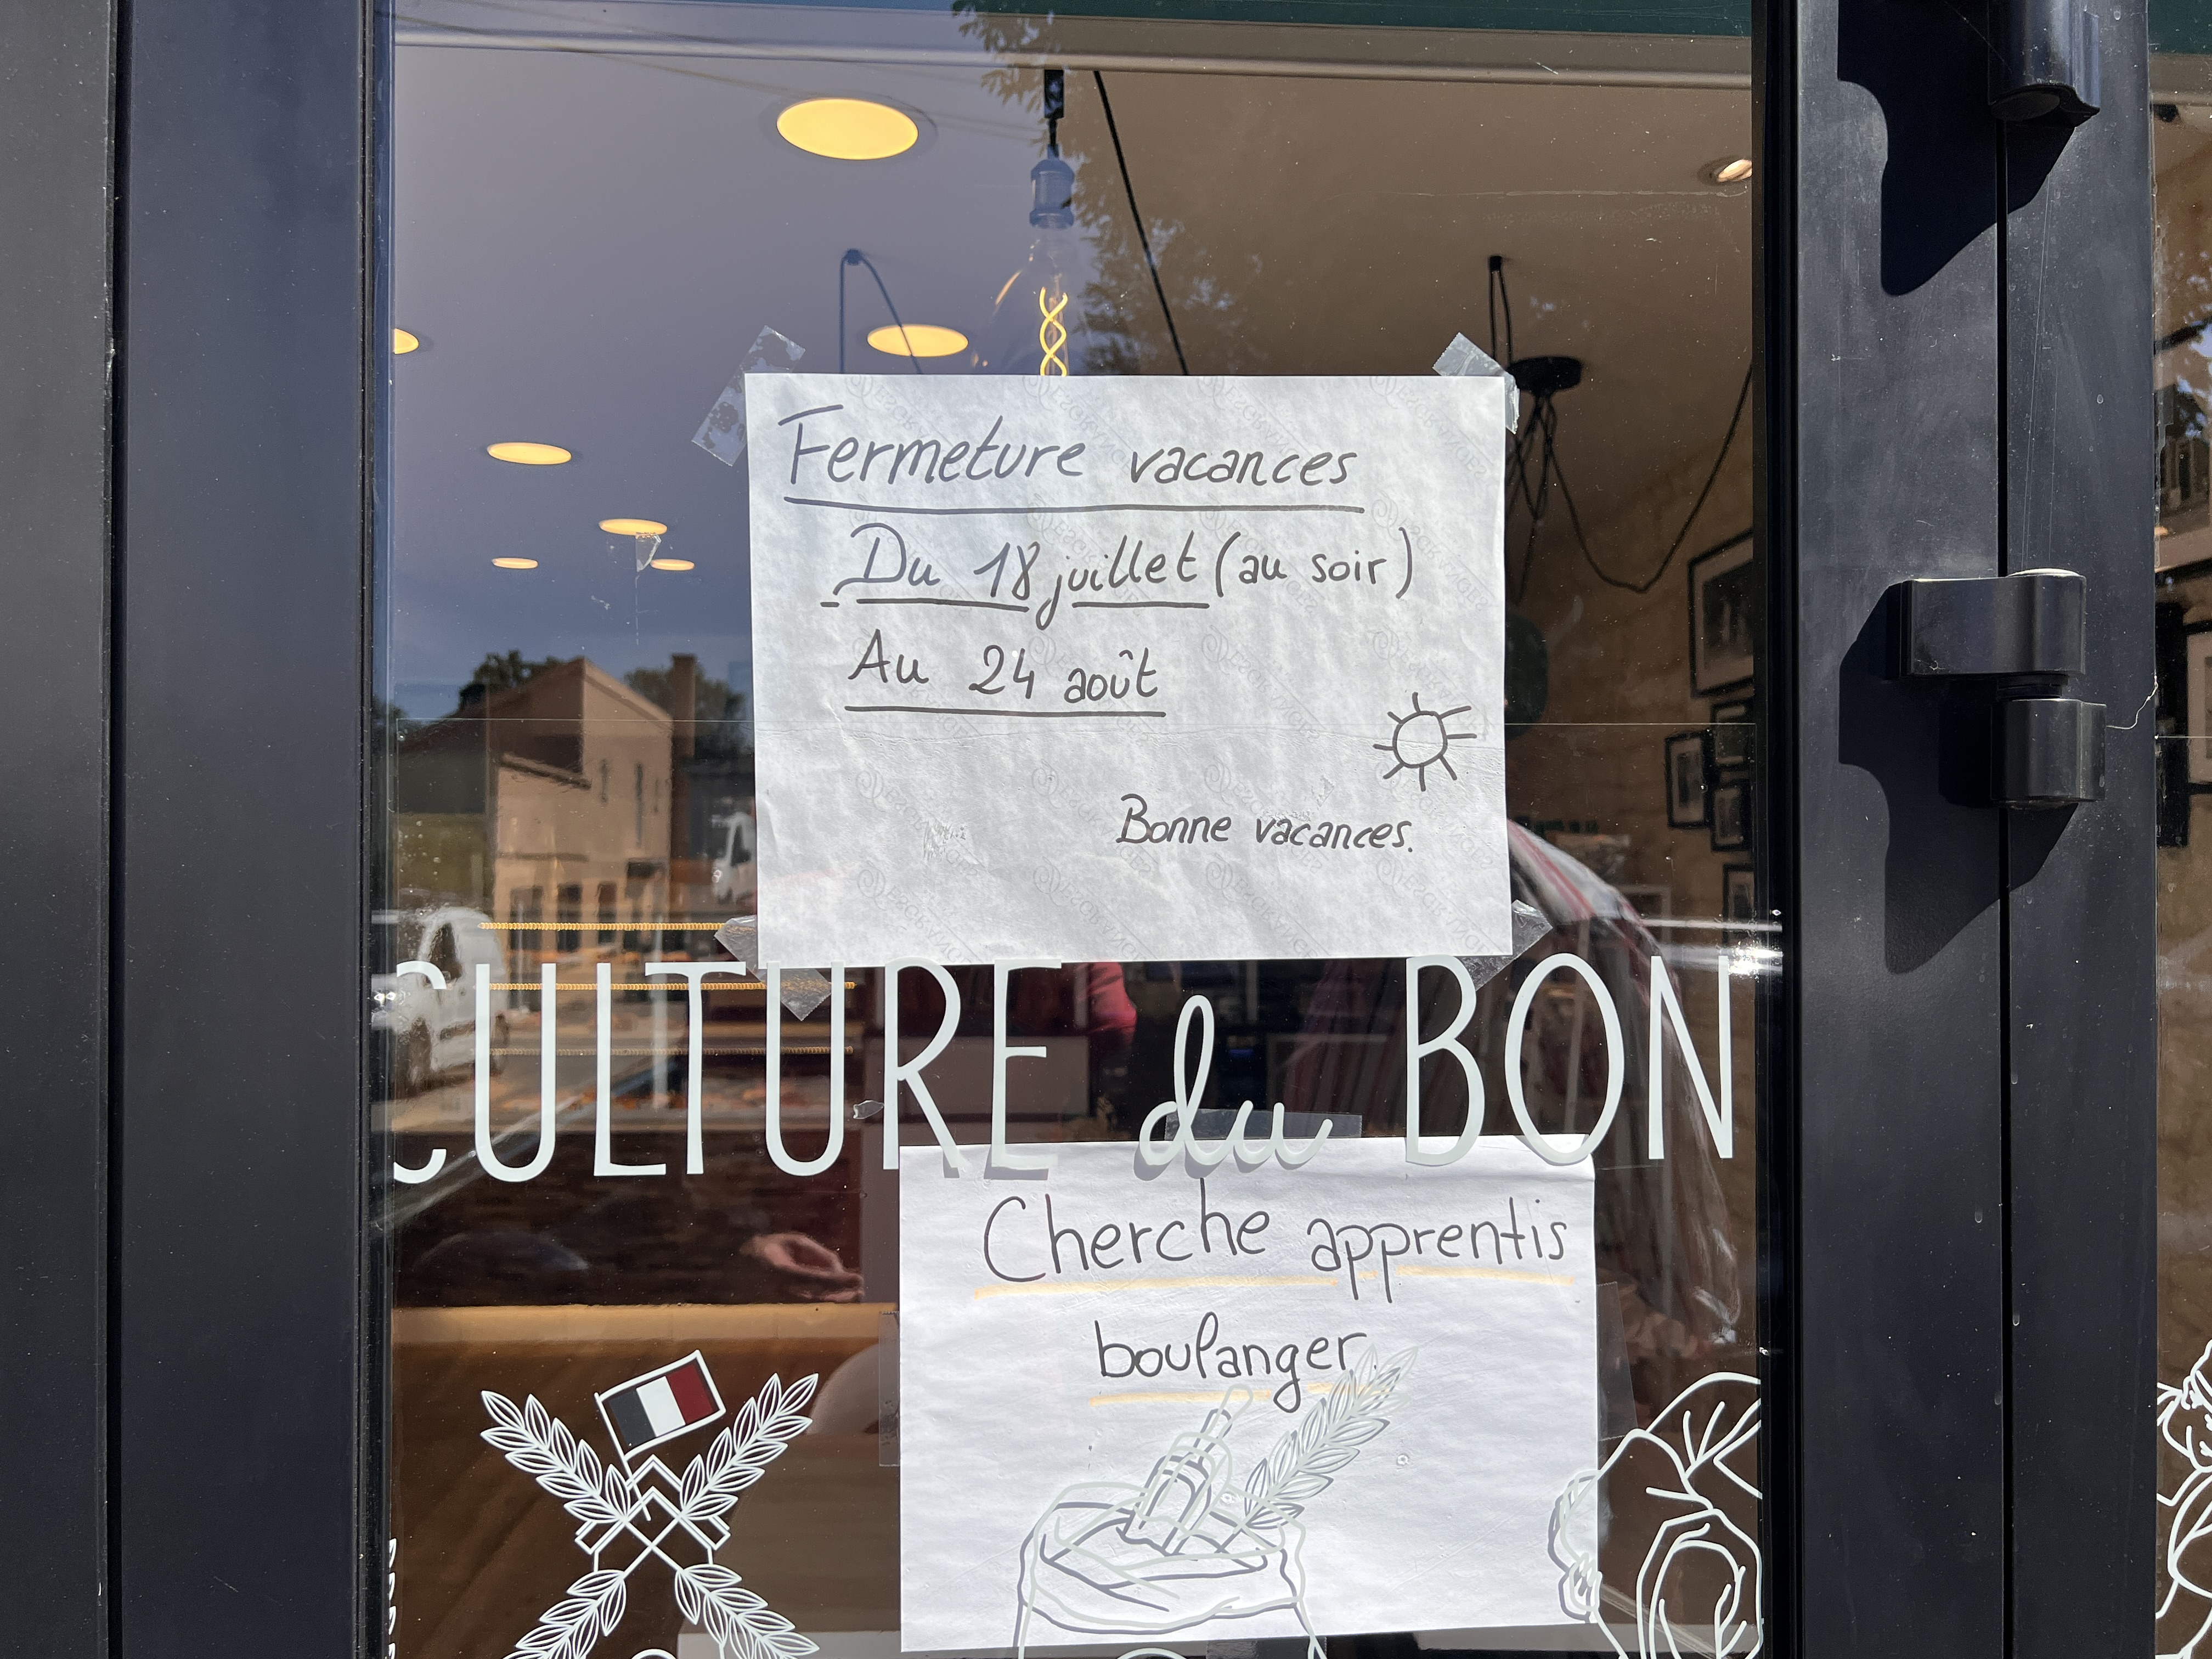 Fermeture vacances
Du 18 juillet (au soir)
Au 24 août
Bonne vacances.
CULTURE du BON
Cherche apprentis
boulanger